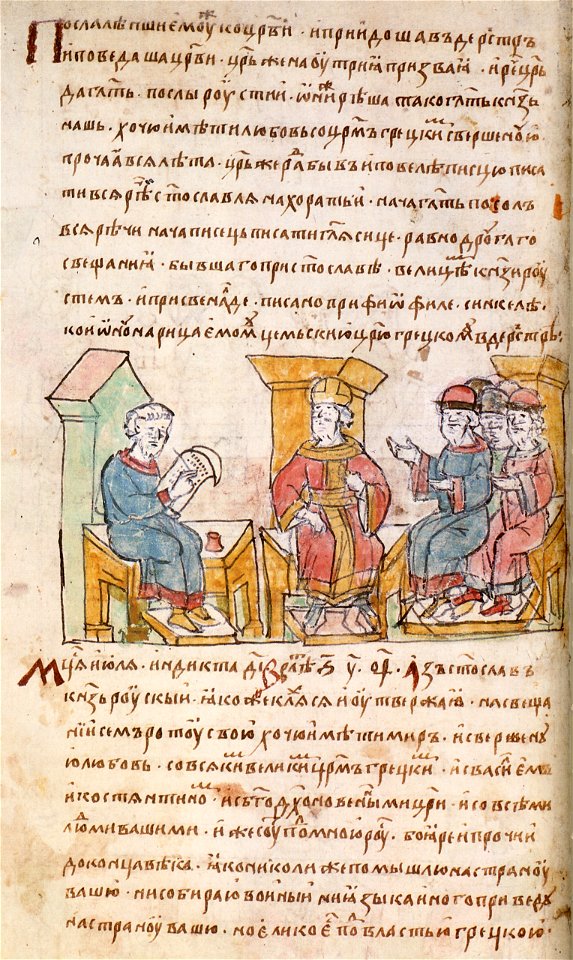 Послалѣпшиемоⷤукоцр҃ви · иприидошавъдерьстръ
иповедашацр҃ви · цр҃ьженаоутриꙗпризваꙗ · ирⷱ҇ецр҃ь
дагл҃ть · послыроустии · ѡниⷤрѣшатакогл҃тькнз҃ь
нашь · хочюимѣтилюбовьсоцр҃мъгрецкиⷨсвершеноую
прочаꙗвсꙗлѣта · цр҃ьжераⷣбывъиповелѣписцюписа
тивсѧрѣⷱс҃тославлѧнахоратьи · начагл҃тьпосолъ
всѧрѣчиначаписецьписатигл҃ѧсице · равнодроугаго
свещаниꙗ · бывшагоприс҃тославѣ · велицѣⷨкнз҃ироу
стемъ · иприсвеналⷣе · писаноприфиѡфиле · синкелѣ ·
коиѡноунарицаемомоуцемьскиюцр҃югрецкомоувъдерьстрѣ ·
мцс҃аиюлѧ · индиктад҃і · влѣⷮ · ҂ѕ҃ · у҃ · о҃ѳ · Азъс҃тославъ
кнз҃ьроускыи · ꙗкожеклѧсѧиоутвержаю · насвеща
ниисемъротоусвою хочюимѣтимиръ · исвершеноу
юлюбовь · совсѧкиⷨвеликиⷨцр҃мъгрецкиⷨ · исвасильемъ
икостѧнтиноⷨ · исбг҃одх҃новеныⷨмицр҃и · исовсѣми
люⷣмивашими · ижесоуⷮпоⷣмноюроуⷭ · боꙗреипрочии
доконцавѣка · ꙗконикольжепомышлюнастраноу
вашю · нисобираювоиныиниꙗзыкаиногоприведоу
настраноувашю · ноеликоеⷭ҇поⷣвластьюгрецкою ·